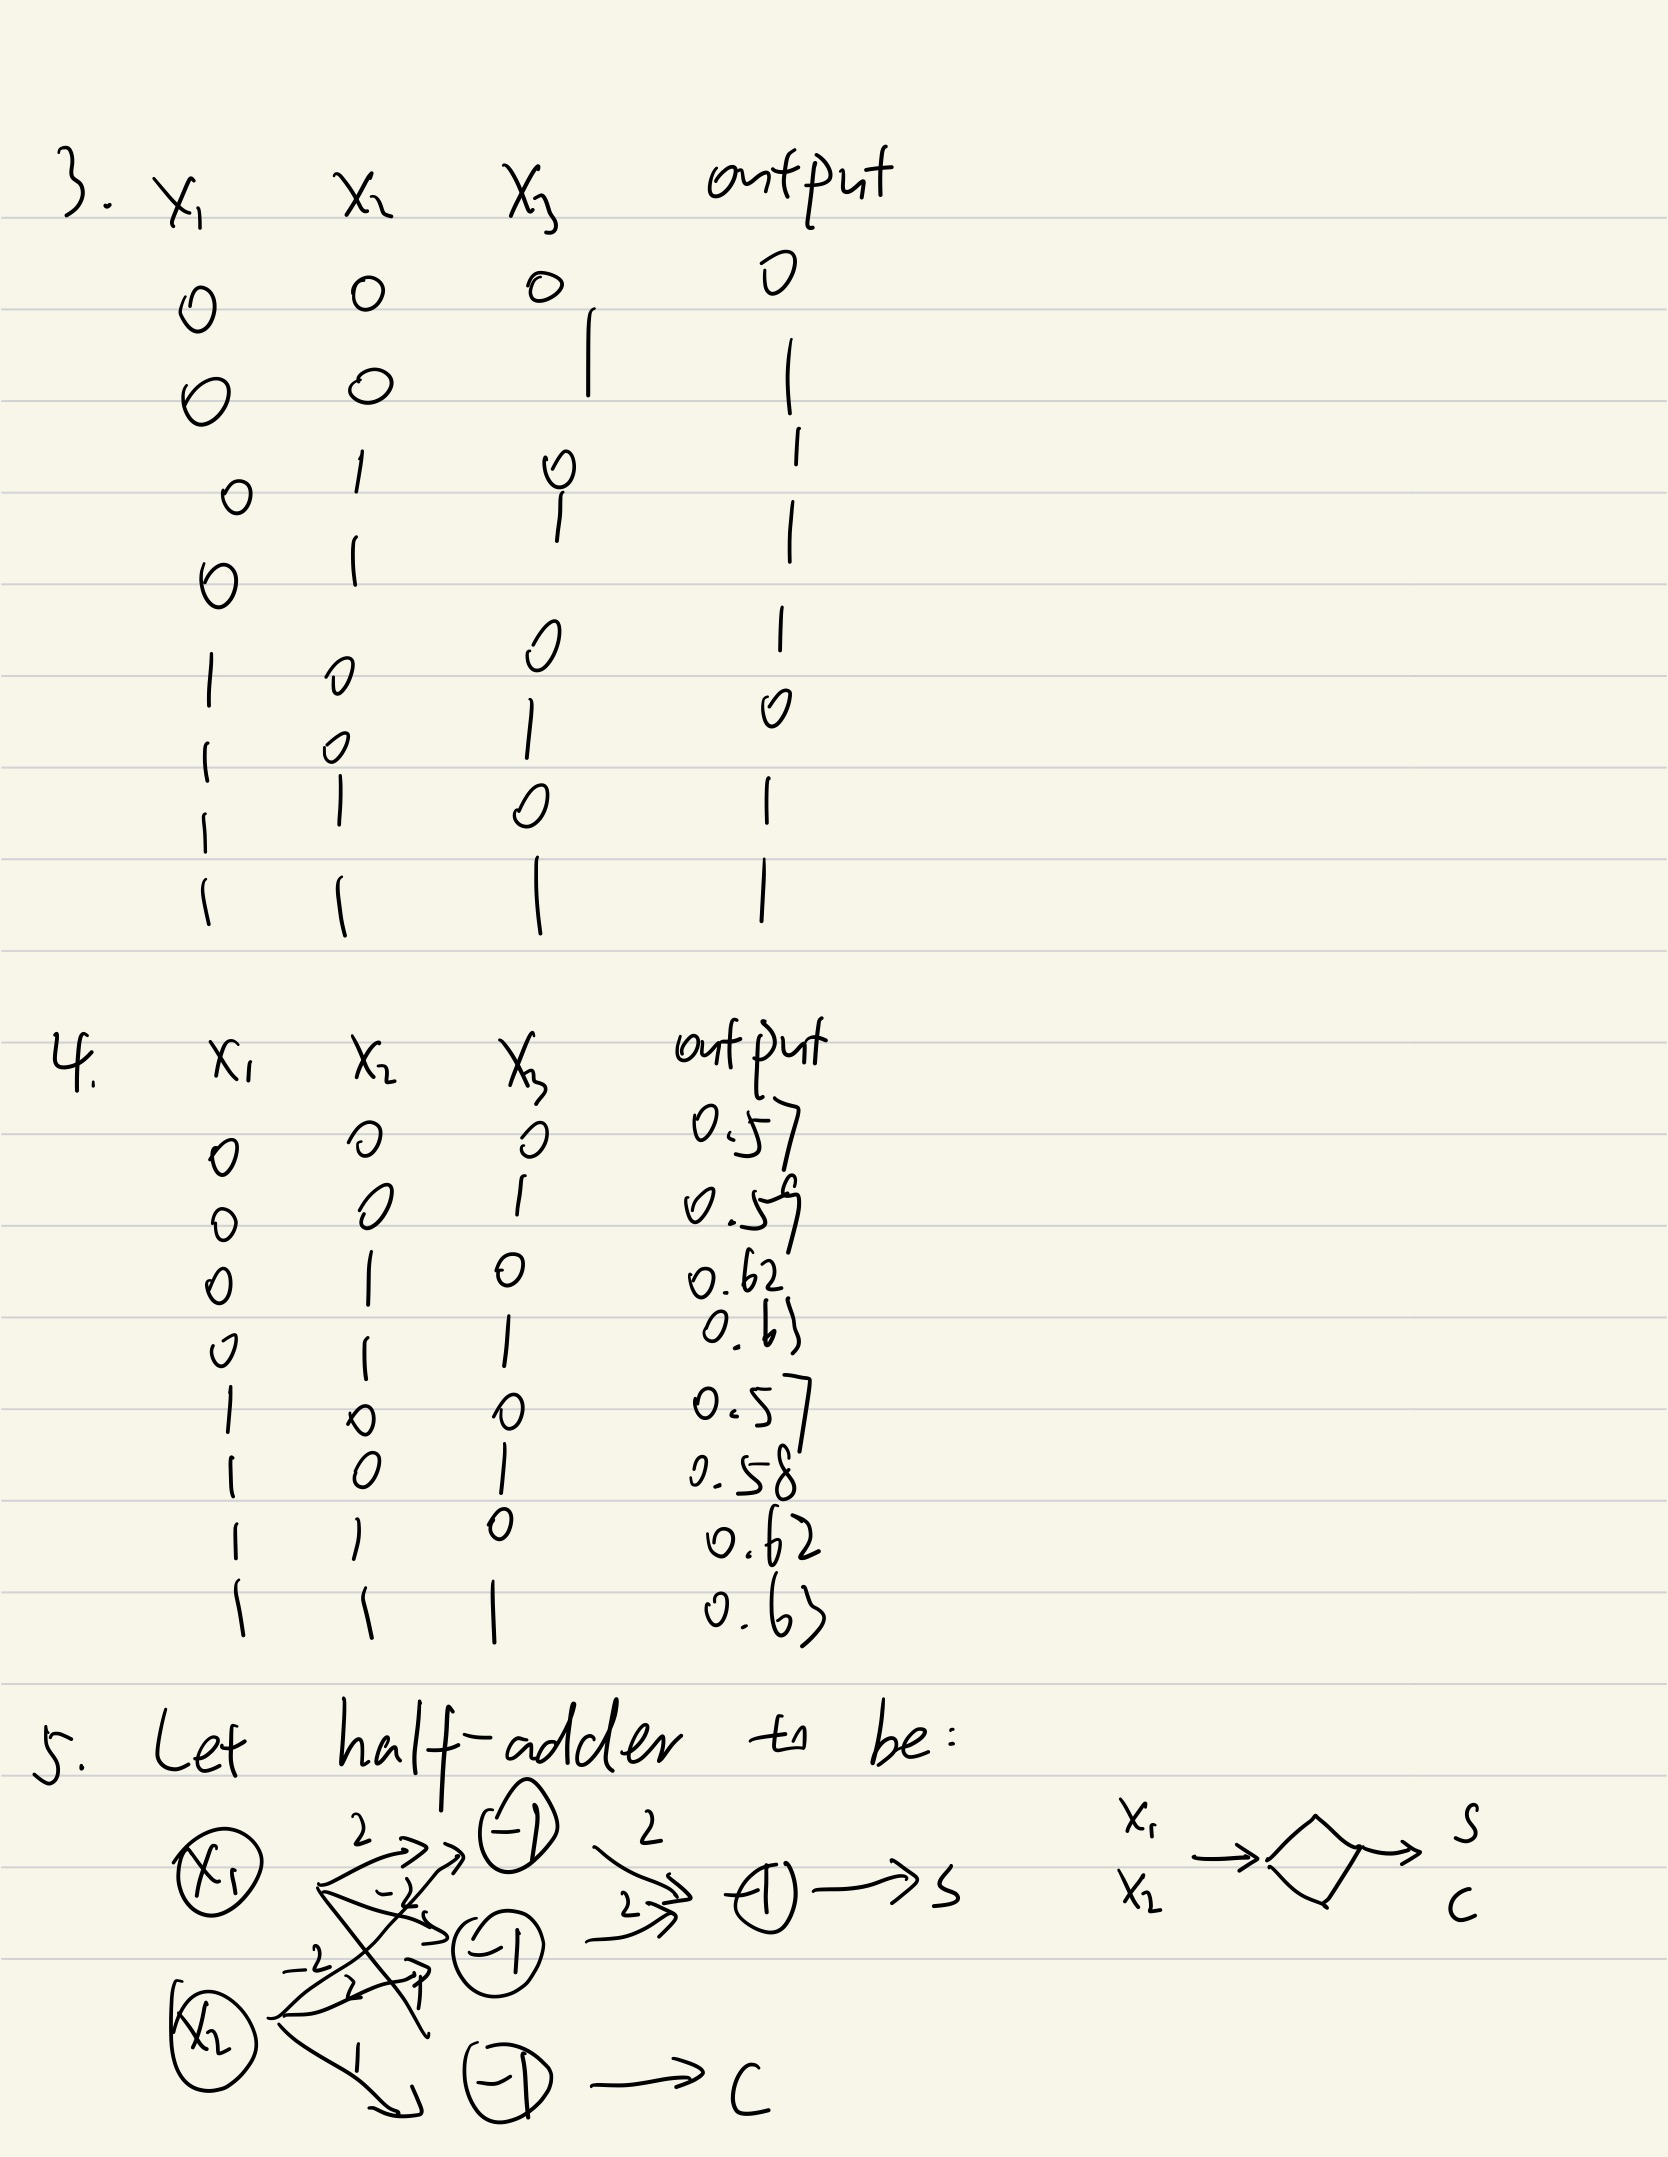 3. X₁ X₂ X₃ output
0 0 0 0
0 0 1 1
0 1 0 1
0 1 1 1
1 0 0 1
1 0 1 0
1 1 0 1
1 1 1 1
4. X₁ X₂ X₃ output
0 0 0 0.57
0 0 1 0.59
0 1 0 0.62
0 1 1 0.63
1 0 0 0.57
1 0 1 0.58
1 1 0 0.62
1 1 1 0.63
5. Let half-adder to be:
X₁ 2 -1 2
-2 2 -1 → S
-2 -1
X₂ 2 1
1 -1 → C
X₁ S
X₂ C